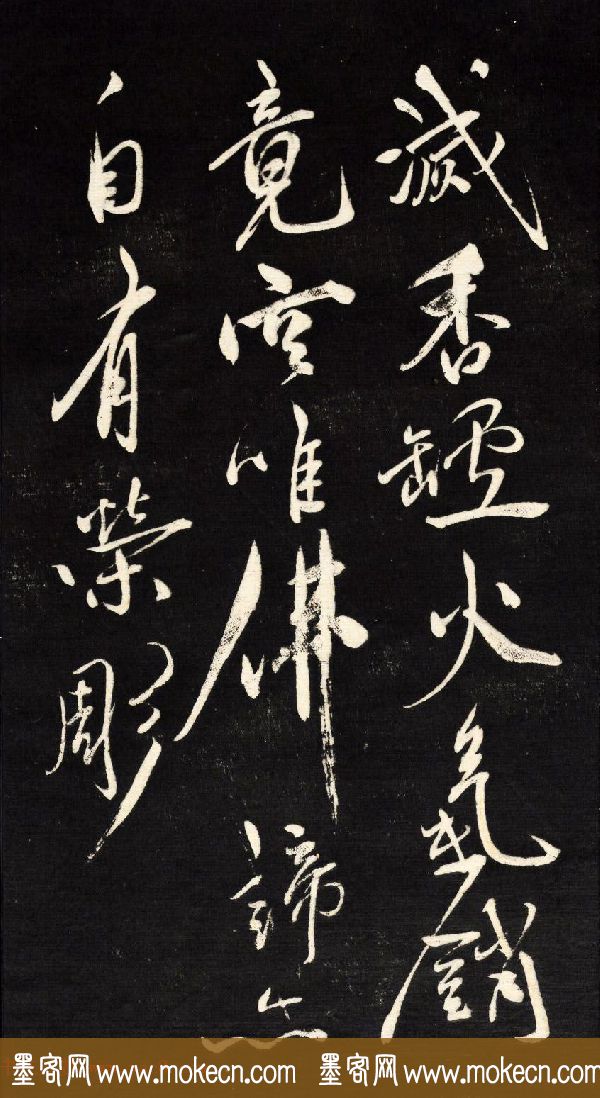 滅香罏火氣銷
竟空唯佛諦
自有榮彫
墨客网 www.mokecn.com 墨客网 www.mokecn.com